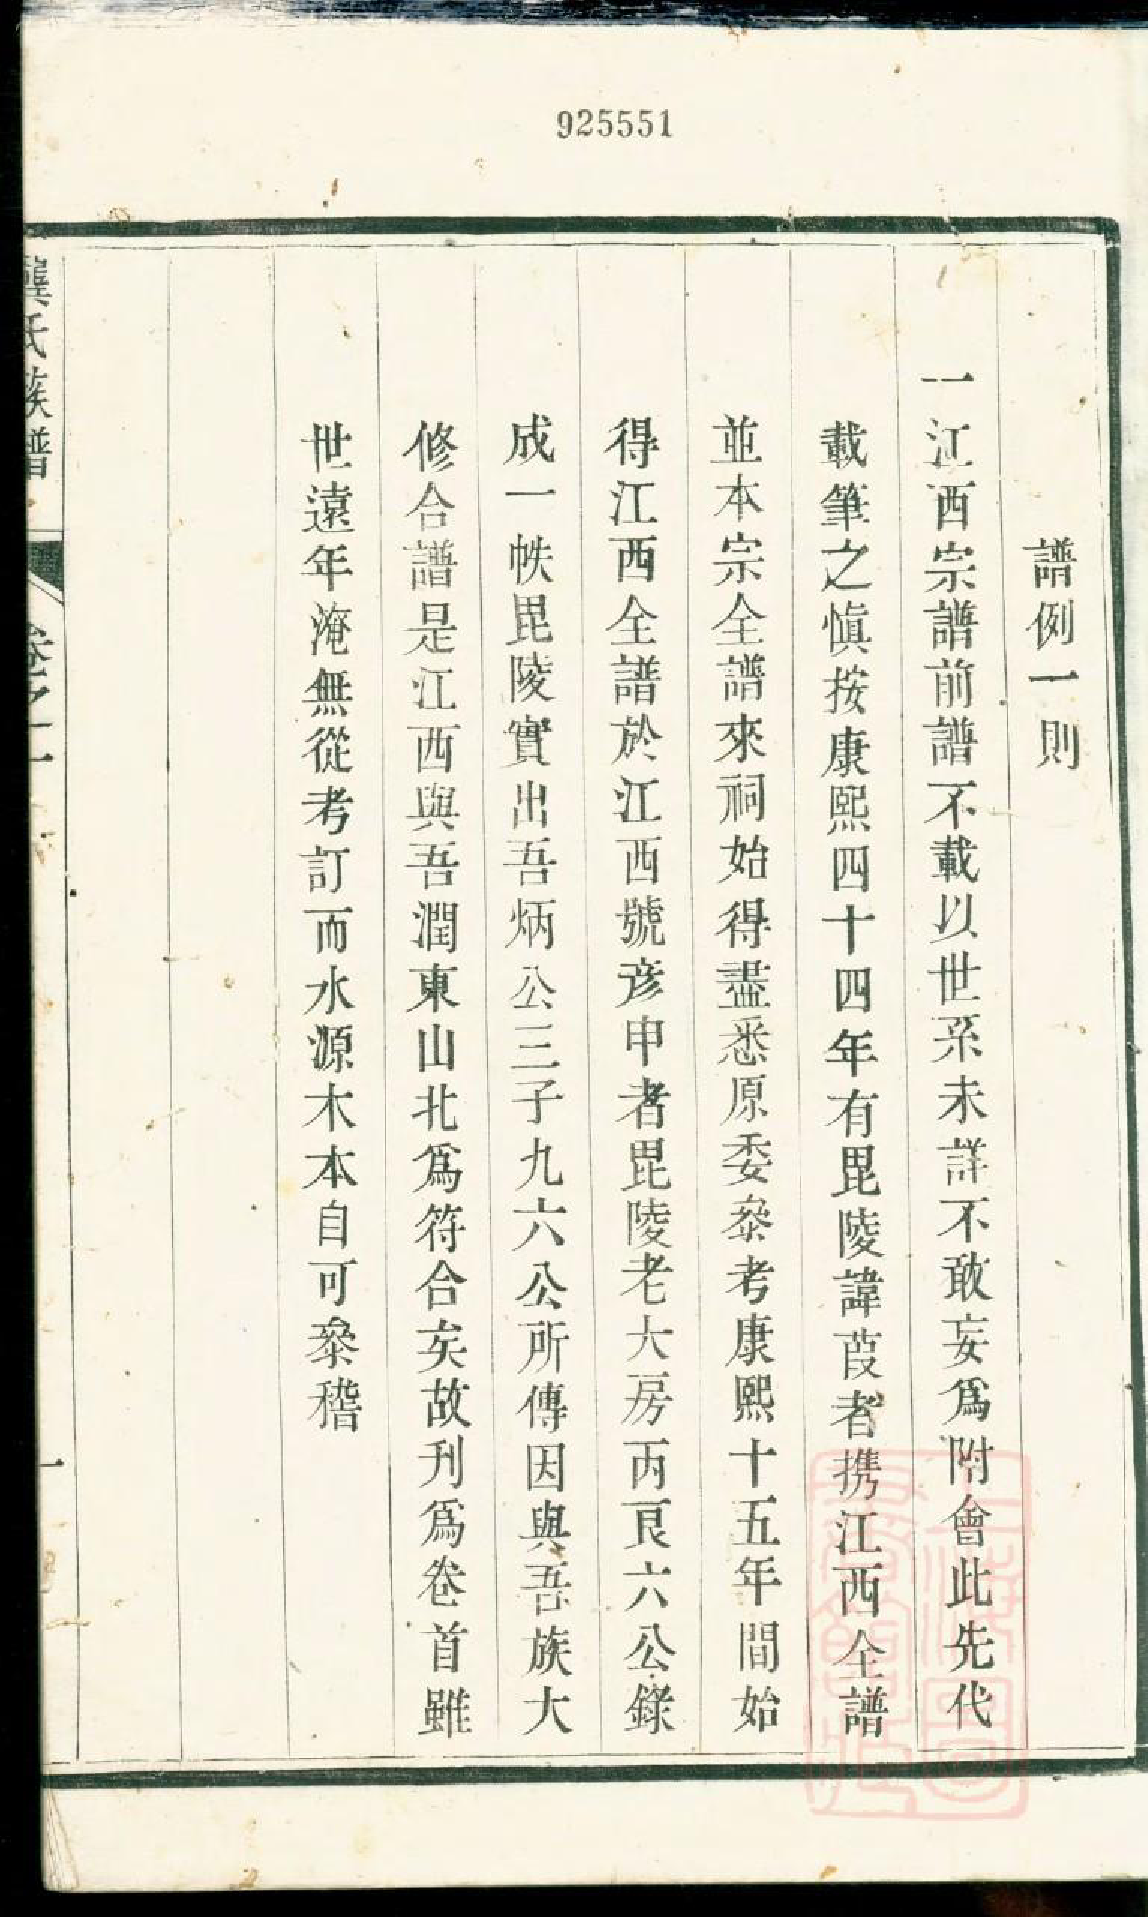 925551
譜例一則
一江西宗譜前譜不載以世系未詳不敢妄爲附會此先代
載筆之愼按康熙四十四年有毘陵諱葭者携江西全譜
並本宗全譜來祠始得盡悉原委叅考康熙十五年間始
得江西全譜於江西號彥申者毘陵老大房丙艮六公錄
成一帙毘陵實出吾炳公三子九六公所傳因與吾族大
修合譜是江西與吾潤東山北爲符合矣故刋爲卷首雖
世遠年淹無從考訂而水源木本自可叅稽
龔氏族譜 卷之一 一